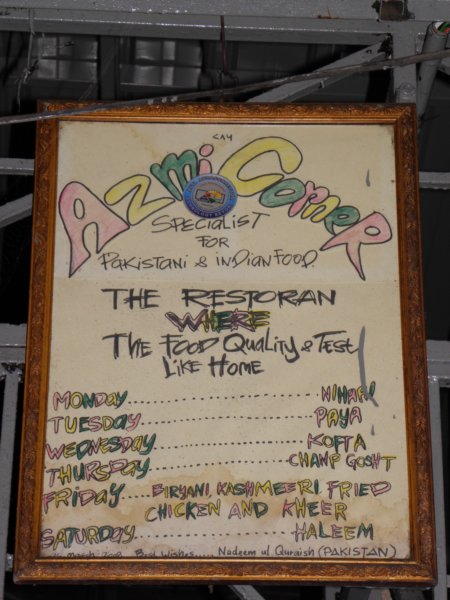 AZMi CORNeR
SPECiALiST
FOR
PakiSTANi & iNDiAN FOOD.
THE RESTORAN
WHERE
THe FOOD QuaLiTy & TeST
LiKe HOMe
MONDAY.......................NIHARI
TUESDAY.......................PAYA
WEDNESDAY.......................KOFTA
THURSDAY.......................CHANP GOSHT
FRiDAY.......BIRYANI, KASHMEERI, FRIED
CHICKEN AND KHEER
SATURDAY.......................HALEEM
March, Best Wishes..... Nadeem ul Quraish (PAKISTAN)